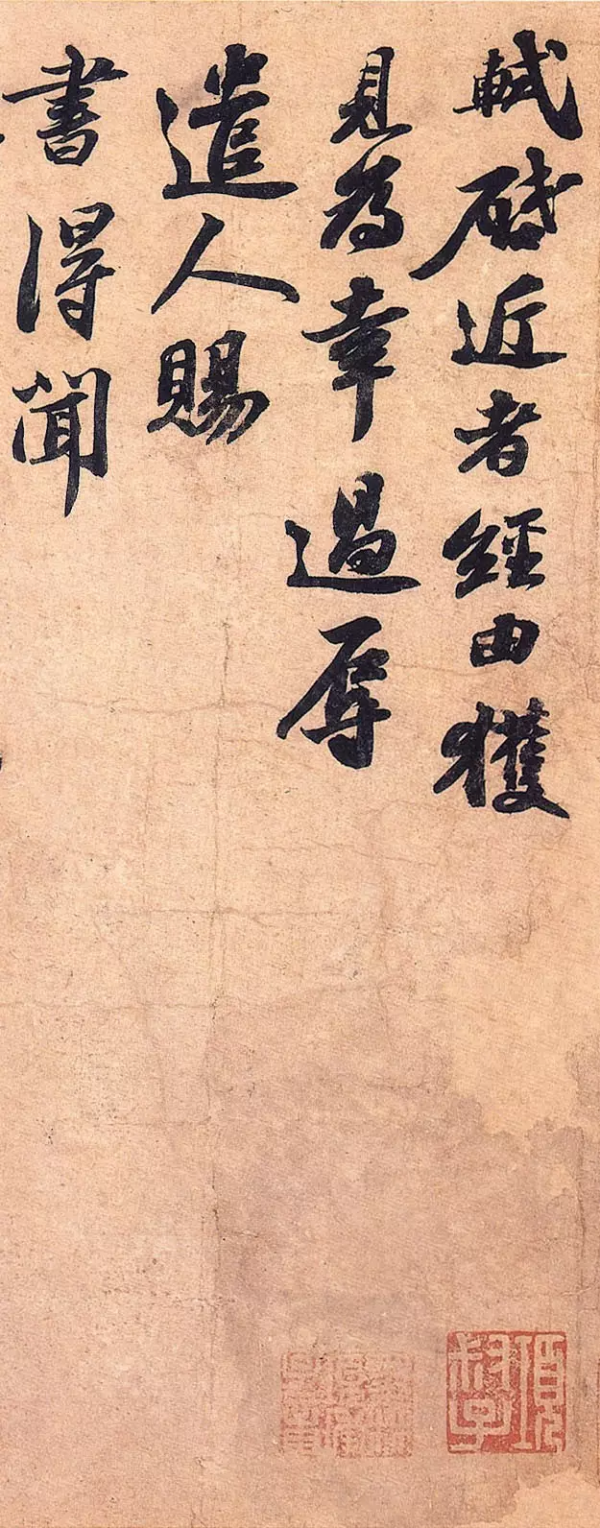 軾啓近者經由獲
見爲幸過辱
遣人賜
書得聞